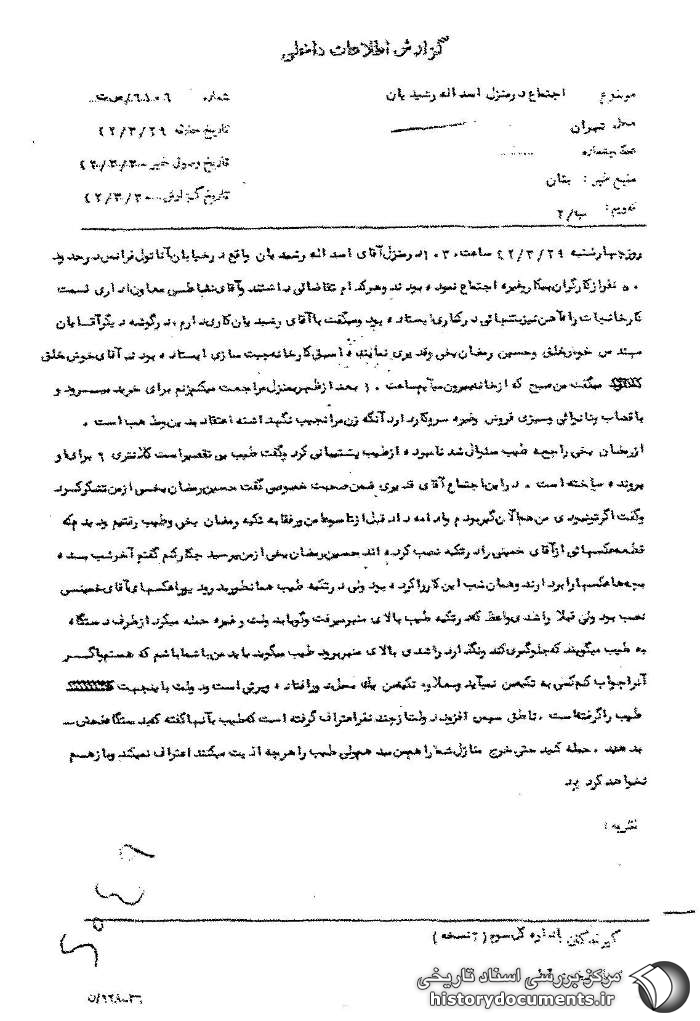 گزارش اطلاعات داخلی
موضوع اجتماع در منزل اسداله رشیدیان
شماره
محل تهران
تاریخ حادثه ۴۲/۳/۲۹
تاریخ وصول خبر ۴۲/۳/۳۰
منبع خبر : بتان
تاریخ گزارش ۴۲/۳/۳۰
تقویم : ب/۲
روز چهارشنبه ۴۲/۳/۲۹ ساعت ۱۰۳۰ در منزل آقای اسداله رشیدیان واقع در خیابان آناتول فرانس در حدود
۵۰ نفر از کارگران بیکار و غیره اجتماع نموده بودند و هر کدام تقاضائی داشتند و آقای معاون اداری قسمت
کارخانجات راه آهن نیز بتنهائی در کناری ایستاده بود و میگفت با آقای رشیدیان کاری دارم ، در گوشه دیگر آقایان
مهندس خوش خلق و حسین رمضان یخی و قدیری نماینده اسبق کارخانه چیت سازی ایستاده بودند آقای خوش خلق
میگفت من صبح که از خانه بیرون میآیم ساعت ۱ بعد از ظهر بمنزل مراجعت میکنم زنم برای خرید میرود و
با قصاب و نانوائی و سبزی فروش و غیره سروکار دارد آنکه زن مرا نجیب نگهداشته اعتقاد بدین و مذهب است .
از رمضان یخی راجع به طیب سئوال شد نامبرده از طیب پشتیبانی کرد و گفت طیب بی تقصیر است کلانتری ۶ برای او
پرونده ساخته است . در این اجتماع آقای قدیری ضمن صحبت خصوصی گفت حسین رمضان یخی از من تشکر کرد
و گفت اگر تو نبودی من هم الان گیر بودم و ادامه داد قبل از تاسوعا من و رفقا به تکیه رمضان یخی و طیب رفتیم و دیدیم که
قطعه عکسهائی از آقای خمینی را در تکیه نصب کرده اند حسین رمضان یخی از من پرسید چکار کنم گفتم آخر شب بده
بچه ها عکسها را بردارند و همان شب این کار را کرده بود ولی در تکیه طیب همانطور بدر و دیوار عکسهای آقای خمینی
نصب بود ولی قبلا راشدی واعظ که در تکیه طیب بالای منبر میرفت و گویا بدولت و غیره حمله میکرد از طرف دستگاه
به طیب میگویند که جلوگیری کند و نگذارد راشدی بالای منبر برود طیب میگوید باید من با شما باشم که هستم و اگر
آنرا جواب کنم کسی به تکیه من نمیآید و بعلاوه تکیه من محل دور افتاده و پرتی است و دولت باینجهت
طیب را گرفته است . ناطق سپس افزود دولت از چند نفر اعتراف گرفته است که طیب بآنها گفته که بدستگاه فحش
بدهید . حمله کنید حتی خرج منازل شما را هم من میدهم ولی طیب را هر چه اذیت میکنند اعتراف نمیکند و باز هم
نخواهد کرد
نظریه :
گیرندگان اداره کل سوم ( ۲ نسخه )
مرکز بررسی اسناد تاریخی
historydocuments.ir